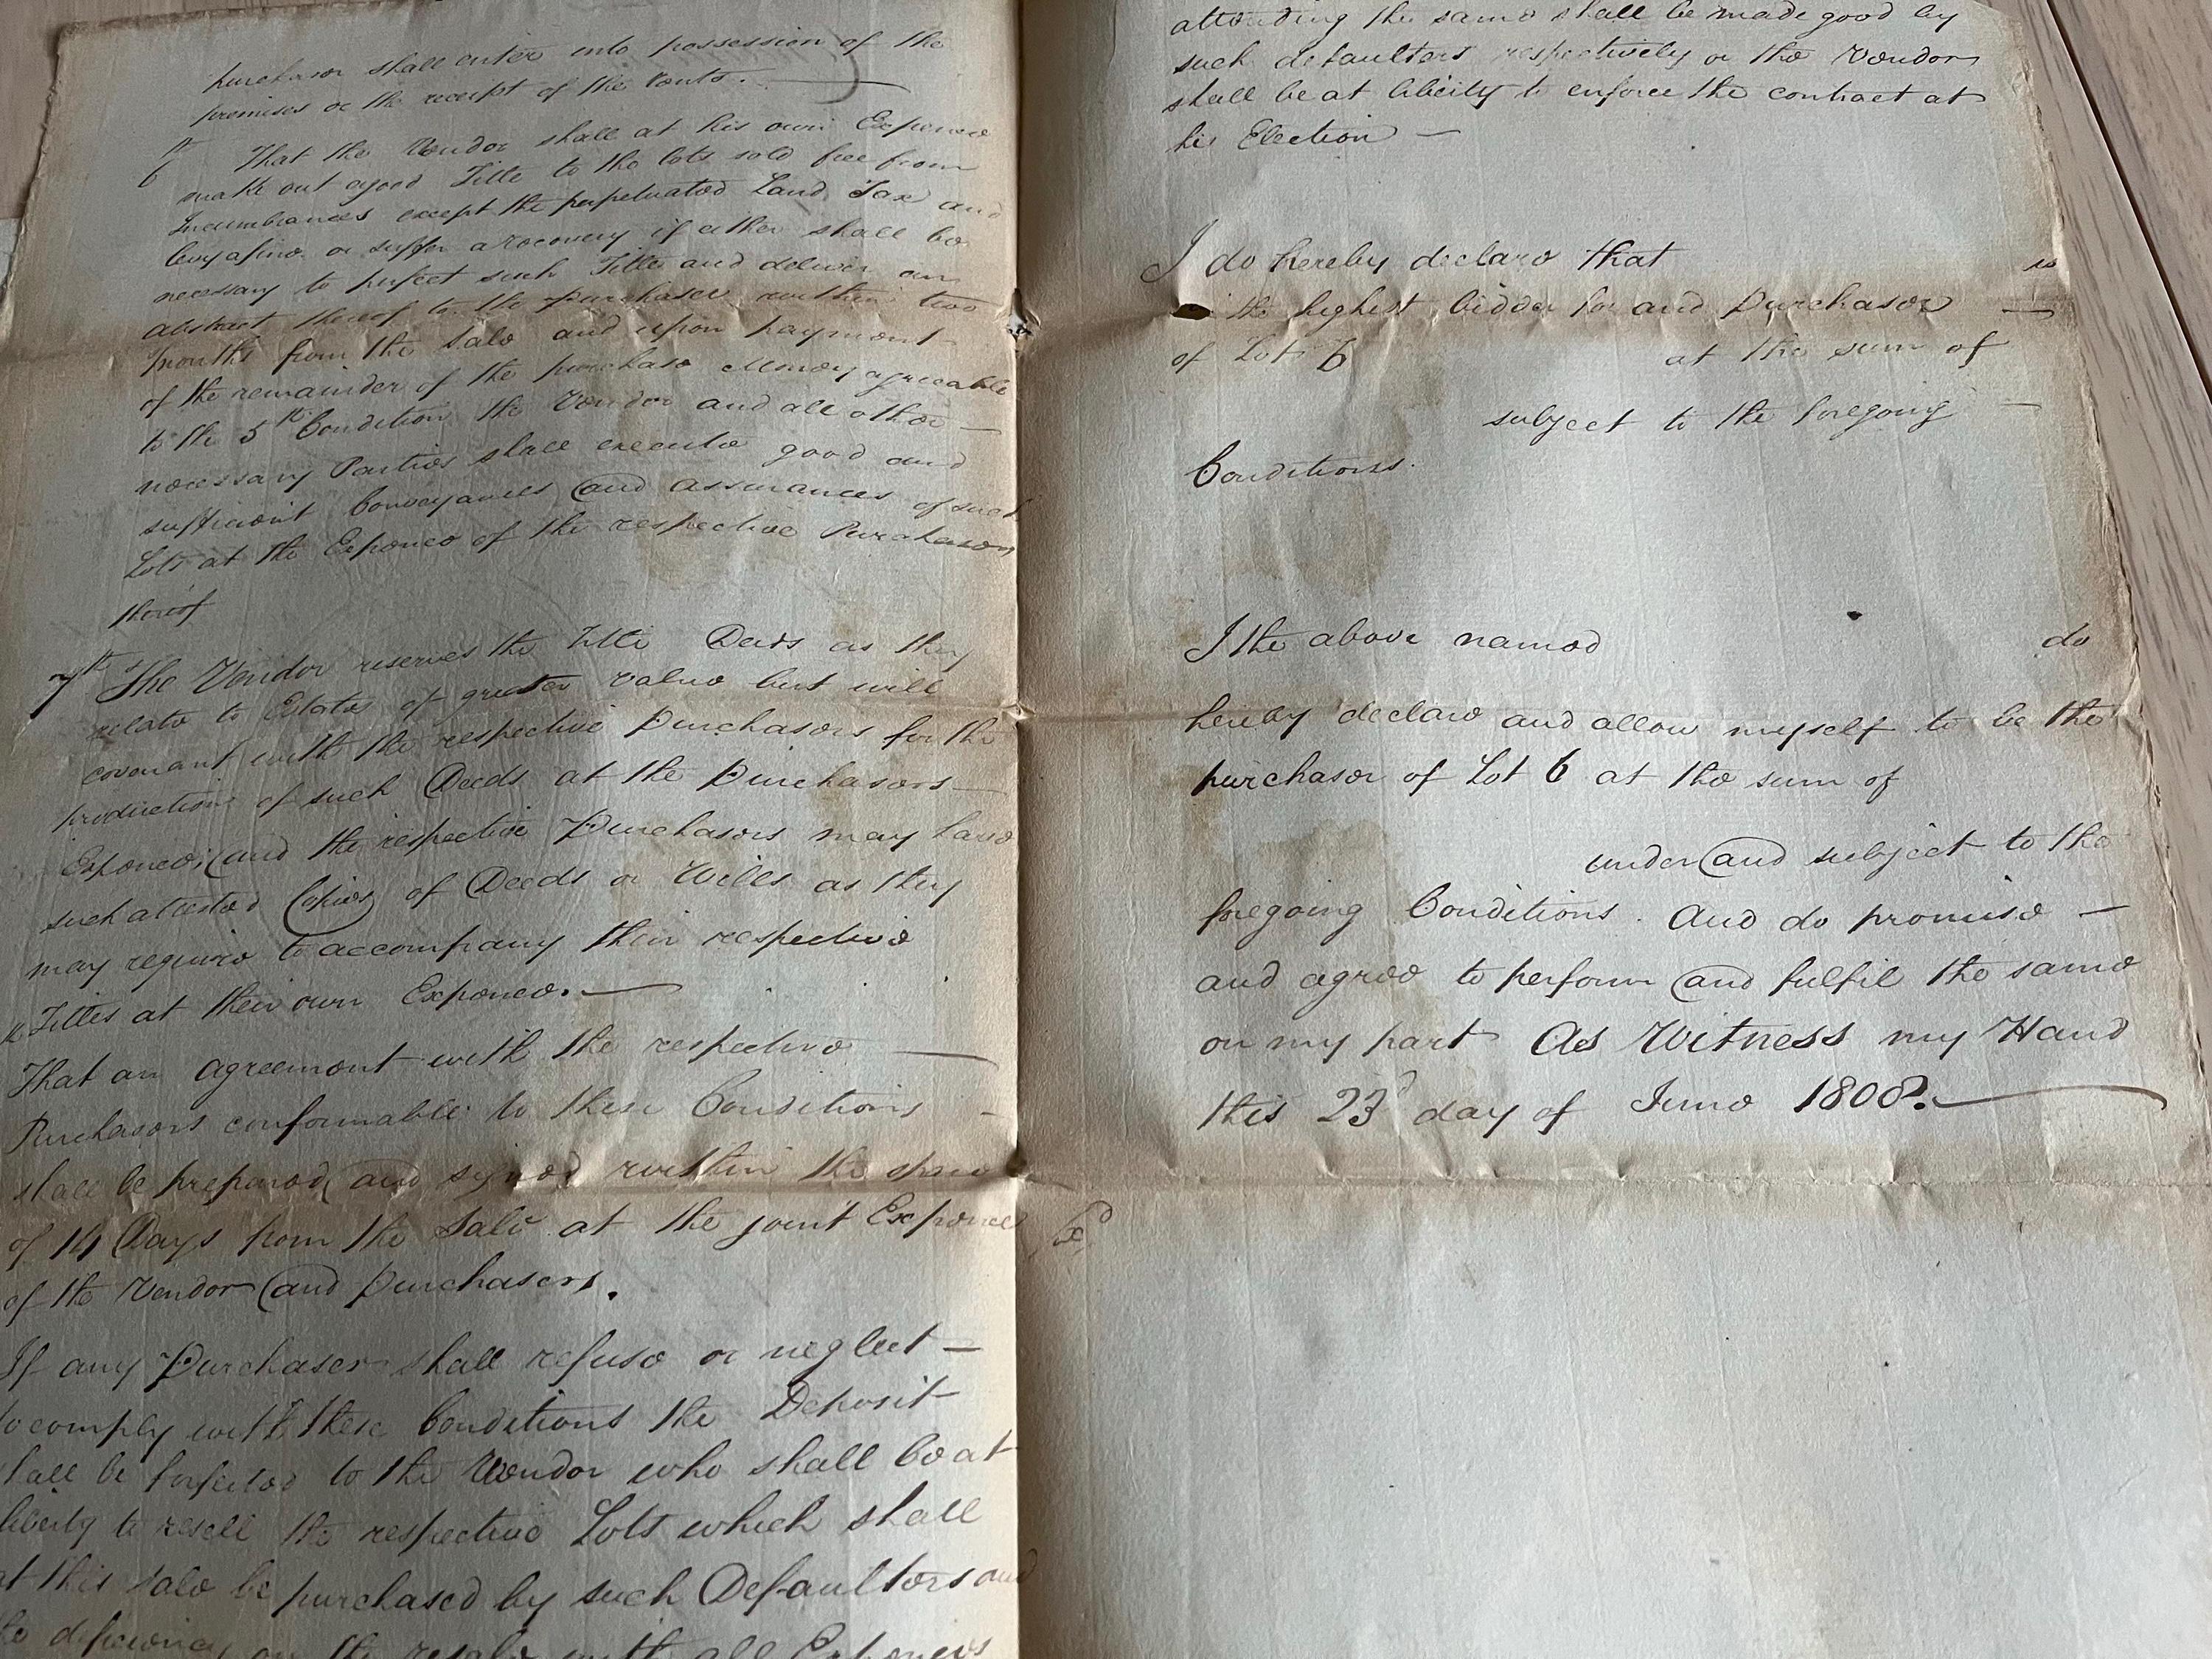 purchaser shall enter into possession of the
premises or the receipt of the rents.
6th That the Vendor shall at his own Expence
make out a good Title to the lots sold free from
Incumbrances except the perpetuated Land Tax and
levy a fine or suffer a recovery if either shall be
necessary to perfect such Title and deliver an
abstract thereof to the purchaser within two
months from the Sale and upon payment
of the remainder of the purchase Money agreeable
to the 5th Condition the Vendor and all other
necessary Parties shall execute good and
sufficient Conveyances and assurances of such
Lots at the Expence of the respective Purchasers
thereof
7th The Vendor reserves the Title Deeds as they
relate to Estates of greater value but will
covenant with the respective Purchasers for the
production of such Deeds at the Purchasers
Expence; and the respective Purchasers may have
such attested Copies of Deeds or Wills as they
may require to accompany their respective
Titles at their own Expence.
That an agreement with the respective
Purchasers conformable to these Conditions
shall be prepared and signed within the space
of 14 Days from the Sale at the joint Expence
of the Vendor and Purchasers.
If any Purchaser shall refuse or neglect
to comply with these Conditions the Deposit
shall be forfeited to the Vendor who shall be at
liberty to resell the respective Lots which shall
at this sale be purchased by such Defaulters and
the deficiency on the resale with all Expences
attending the same shall be made good by
such defaulters respectively or the Vendor
shall be at liberty to enforce the contract at
his Election
I do hereby declare that is
the highest bidder for and Purchaser
of Lot 6 at the sum of
subject to the foregoing
Conditions.
I the above named do
hereby declare and allow myself to be the
purchaser of Lot 6 at the sum of
under and subject to the
foregoing Conditions. And do promise
and agree to perform and fulfil the same
on my part As Witness my Hand
this 23d day of June 1808.